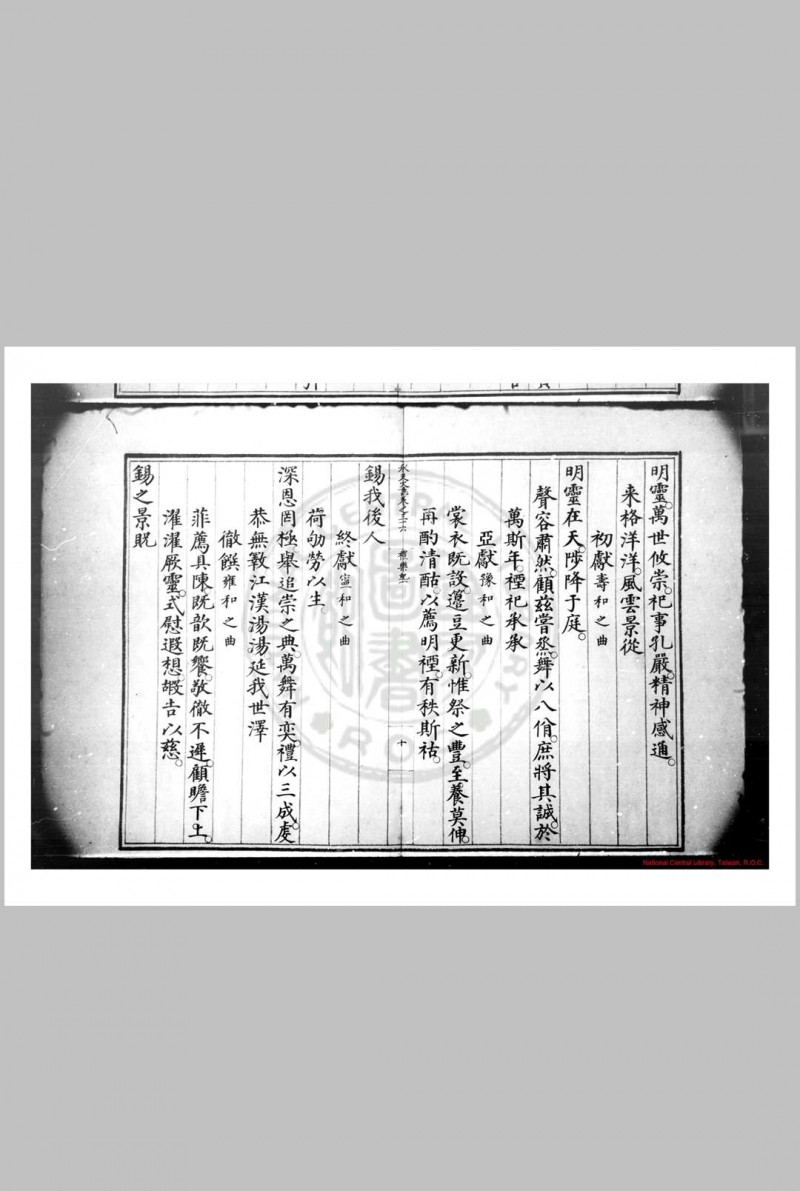 明靈。萬世攸崇。祀事孔嚴。精神感通。
来格洋洋。風雲景從
初獻壽和之曲
明靈在天。陟降于庭。
聲容肅然。顧兹嘗烝。舞以八佾。庶將其誠。於
萬斯年。禋祀承承
亞獻豫和之曲
裳衣既設。籩豆更新。惟祭之豐。至養莫伸。
再酌清酤。以薦明禋。有秩斯祜。
錫我後人
終獻寧和之曲
荷劬勞以生
深恩罔極。舉追崇之典。萬舞有奕。禮以三成。虔
恭無斁。江漢湯湯。延我世澤
徹饌雍和之曲
菲薦具陳。既歆既饗。敬徹不遲。顧瞻下土。
濯濯厥靈。式慰遐想。嘏告以慈。
錫之景貺
十
National Central Library, Taiwan, R.O.C.